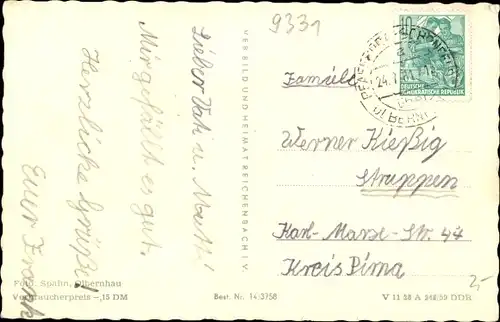 9331
Lieber Vati u. Mutti!
Mir gefällt es gut.
Herzliche Grüße!
Euer Frank
Foto. Spahn, Olbernhau
Verbraucherpreis -,15 DM
VEB BILD UND HEIMAT REICHENBACH I. V.
Best. Nr. 14/3758
10
DEUTSCHE
DEMOKRATISCHE REPUBLIK
24.
Familie
Werner Kießig
Struppen
Karl-Marx-Str. 47
Kreis Pirna
2,-
V 11 28 A 948/59 DDR